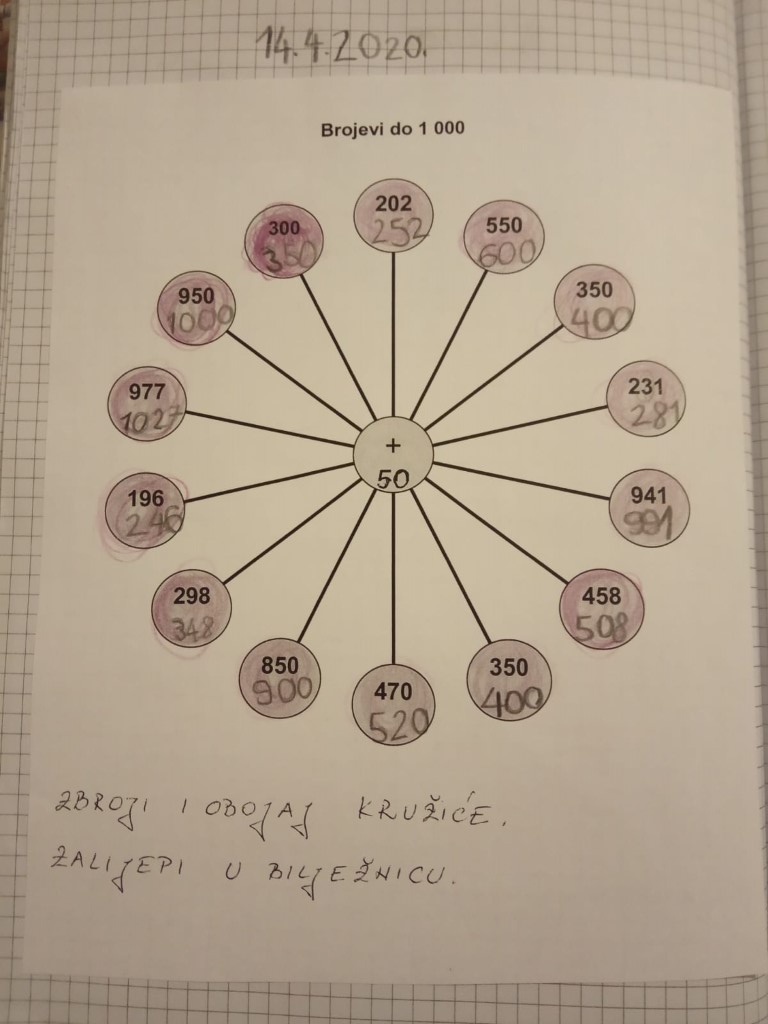 14.4.2020.
Brojevi do 1 000
202
252
550
600
350
400
231
281
941
991
458
508
350
400
470
520
850
900
298
348
196
246
977
1027
950
1000
300
350
+
50
ZBROJI I OBOJAJ KRUŽIĆE.
ZALIJEPI U BILJEŽNICU.